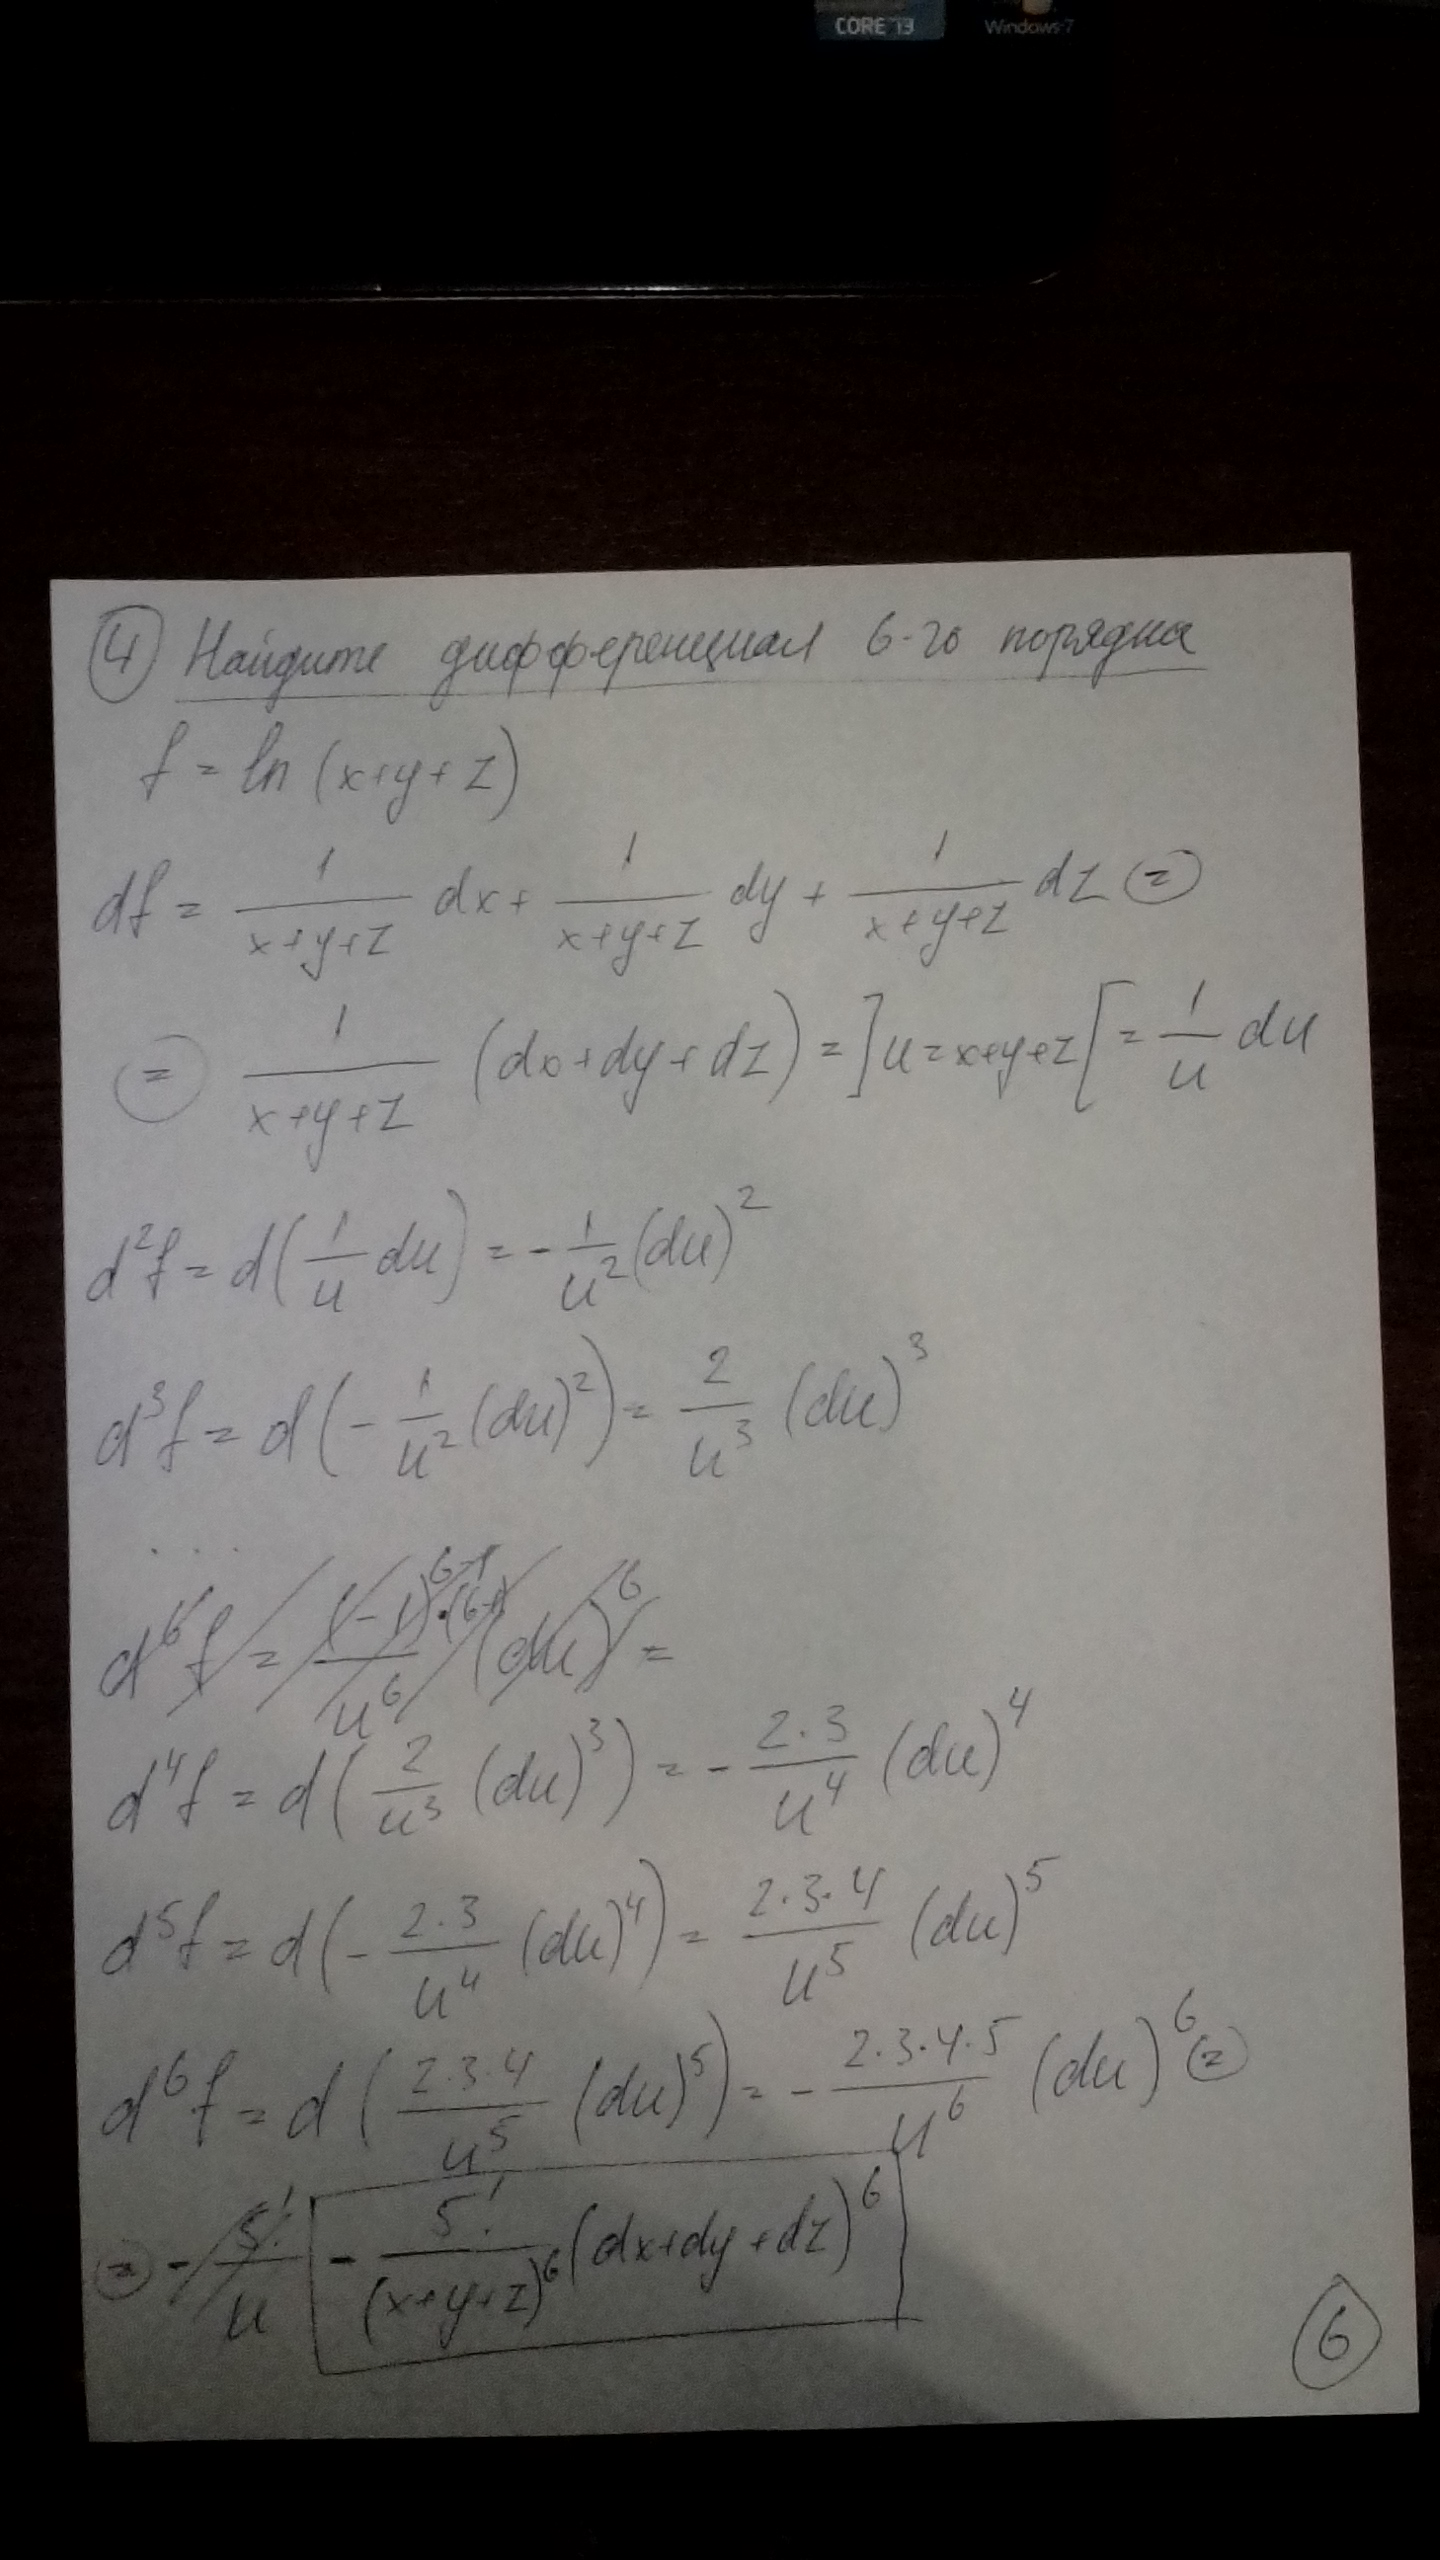 CORE i3 Windows 7
④ Найдите дифференциал 6-го порядка
f = ln (x+y+z)
df = 1/(x+y+z) dx + 1/(x+y+z) dy + 1/(x+y+z) dz ⊜
⊜ 1/(x+y+z) (dx+dy+dz) = ]u=x+y+z[ = 1/u du
d²f = d(1/u du) = - 1/u² (du)²
d³f = d(- 1/u² (du)²) = 2/u³ (du)³
...
d⁶f = (-1)⁶⁻¹·(6-1)/u⁶ (du)⁶ =
d⁴f = d(2/u³ (du)³) = - 2·3/u⁴ (du)⁴
d⁵f = d(- 2·3/u⁴ (du)⁴) = 2·3·4/u⁵ (du)⁵
d⁶f = d(2·3·4/u⁵ (du)⁵) = - 2·3·4·5/u⁶ (du)⁶ ⊜
⊜ - 5!/u - 5!/(x+y+z)⁶ (dx+dy+dz)⁶
6